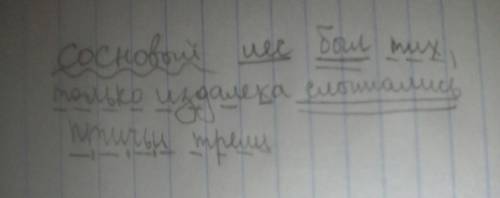 сосновый лес был тих,
только издалека слышались
птичьи трели